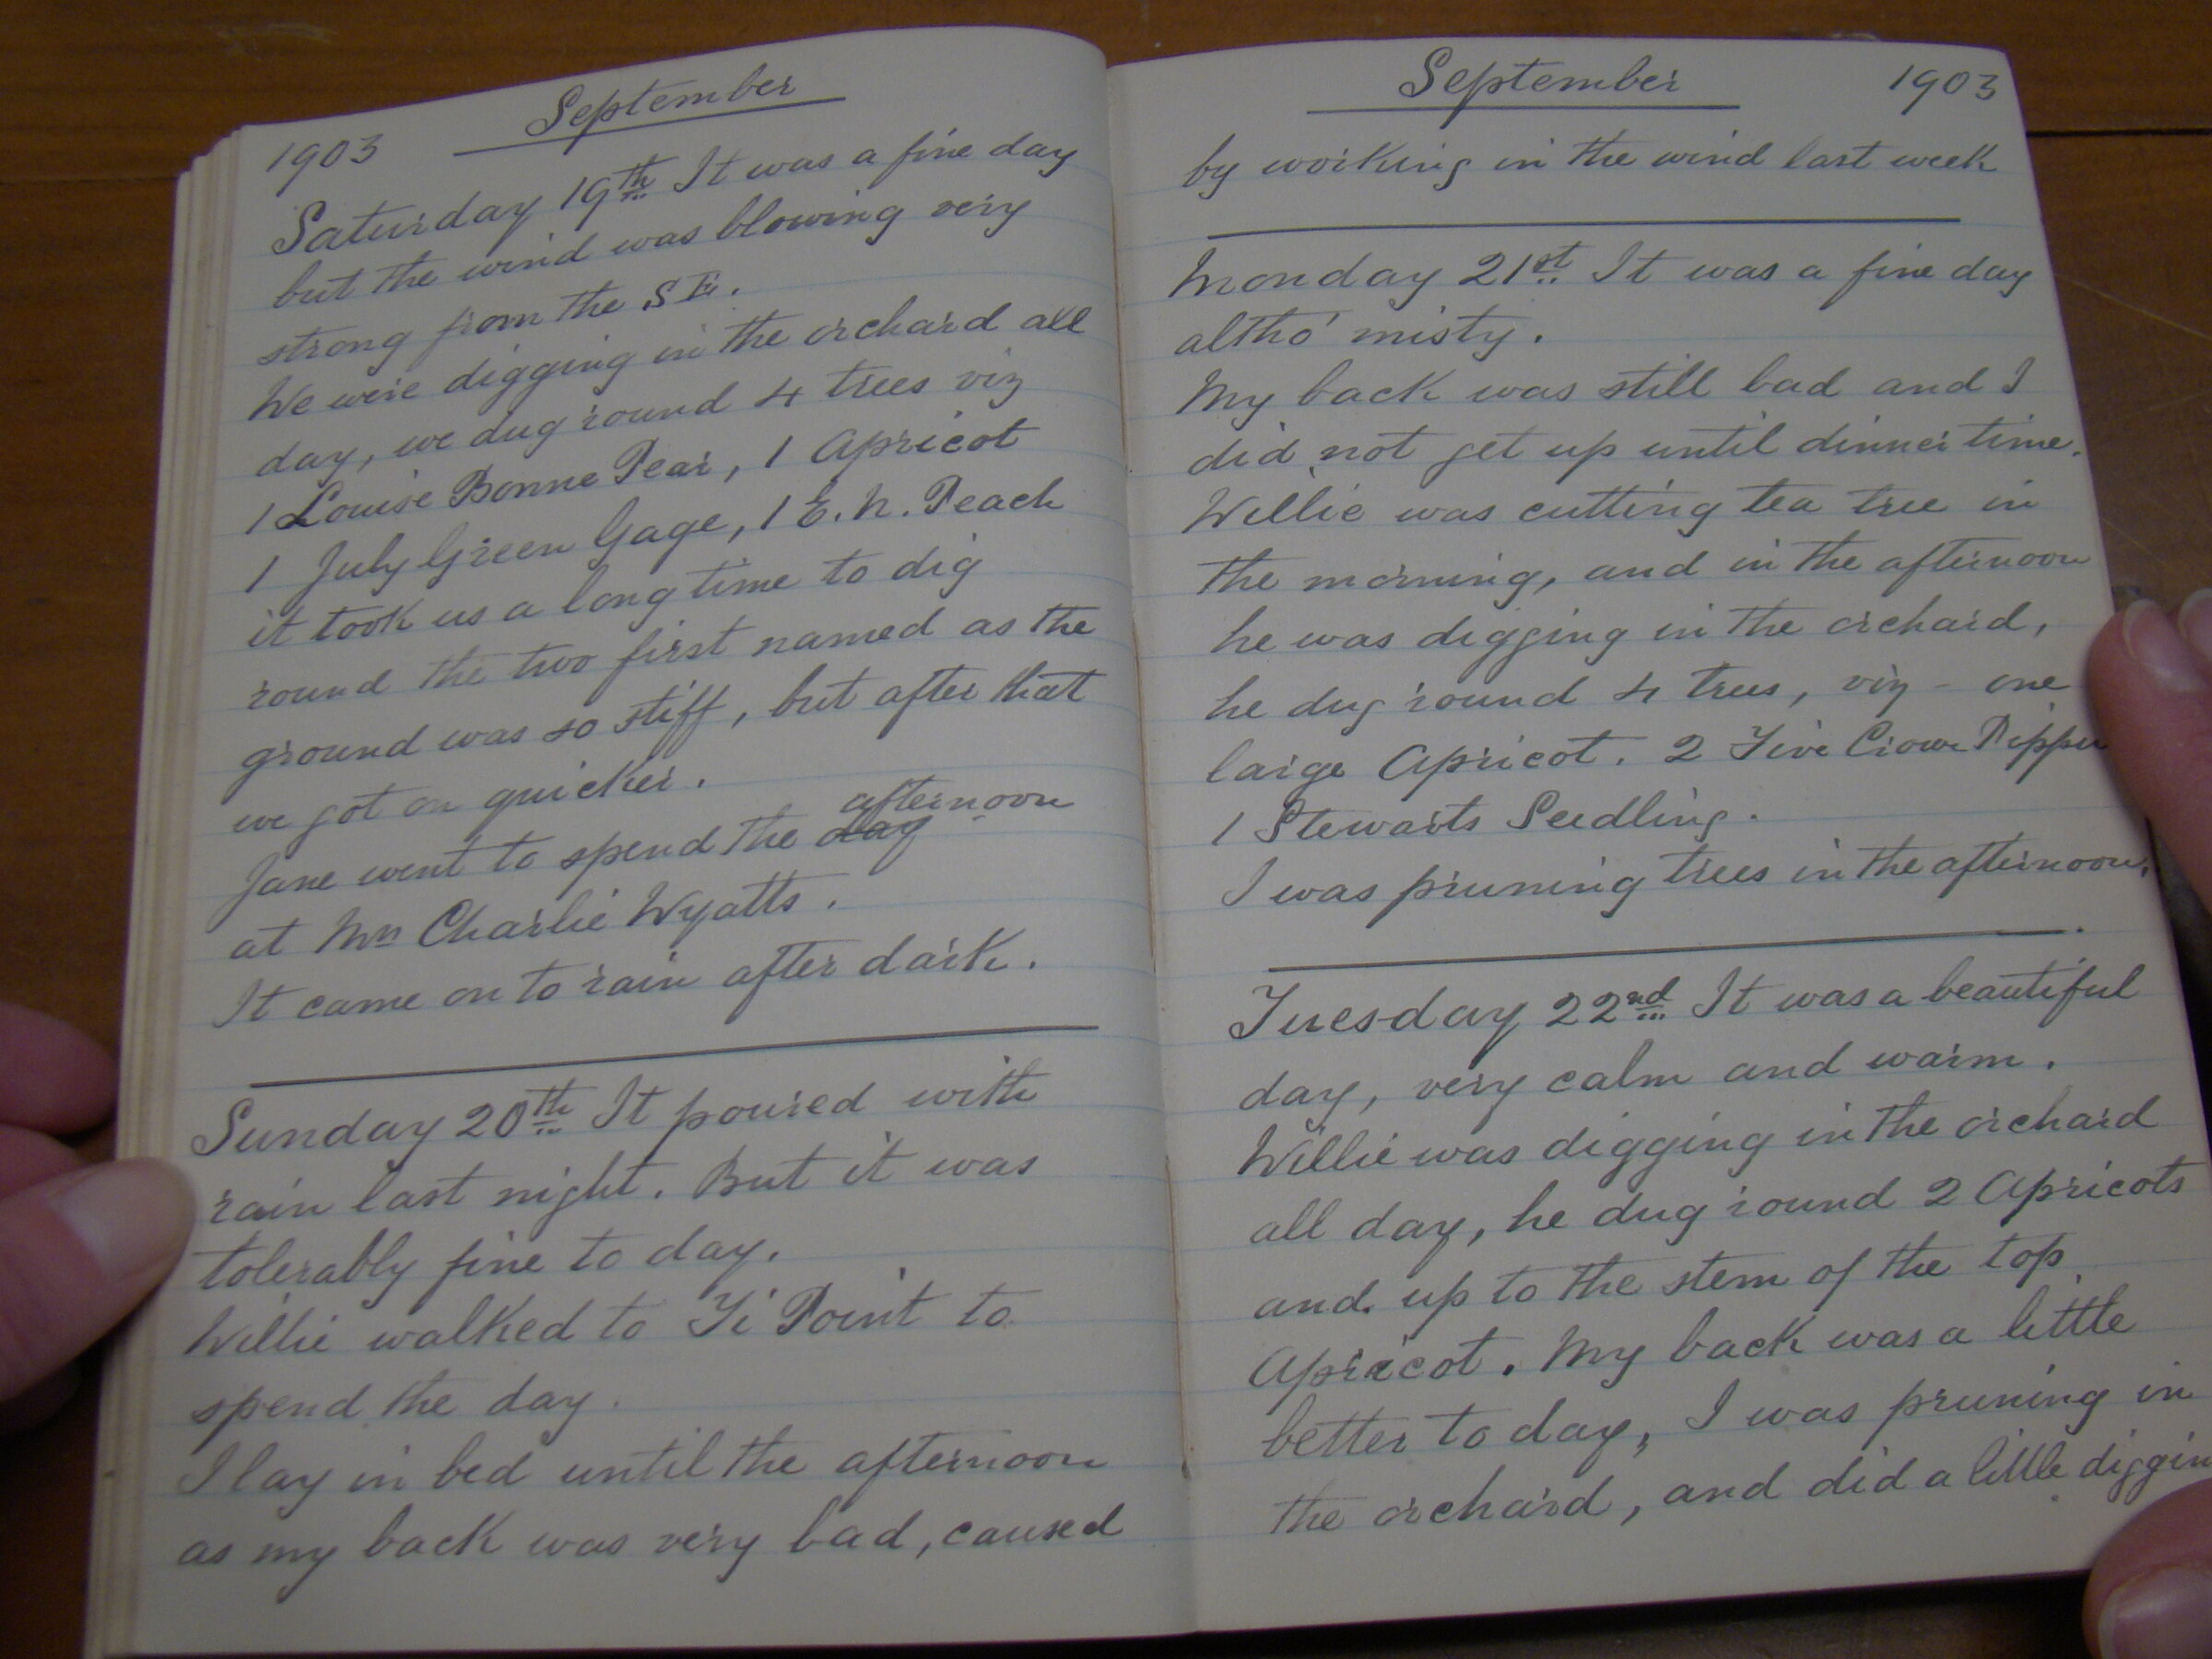 September
1903
Saturday 19th It was a fine day
but the wind was blowing very
strong from the S E.
We were digging in the orchard all
day, we dug round 4 trees viz
1 Louise Bonne Pear, 1 Apricot
1 July Green Gage, 1 E. N. Peach
it took us a long time to dig
round the two first named as the
ground was so stiff, but after that
we got on quicker.
afternoon
Jane went to spend the day
at Mrs Charlie Wyatts.
It came on to rain after dark.
Sunday 20th It poured with
rain last night. But it was
tolerably fine to day.
Willie walked to Ti Point to
spend the day.
I lay in bed until the afternoon
as my back was very bad, caused
September 1903
by working in the wind last week
Monday 21st It was a fine day
altho' misty.
My back was still bad and I
did not get up until dinner time.
Willie was cutting tea tree in
the morning, and in the afternoon
he was digging in the orchard,
he dug round 4 trees, viz - one
large Apricot. 2 Five Crown Pippin
1 Stewarts Seedling.
I was pruning trees in the afternoon.
Tuesday 22nd It was a beautiful
day, very calm and warm.
Willie was digging in the orchard
all day, he dug round 2 Apricots
and up to the stem of the top
Apricot. My back was a little
better to day, I was pruning in
the orchard, and did a little diggin